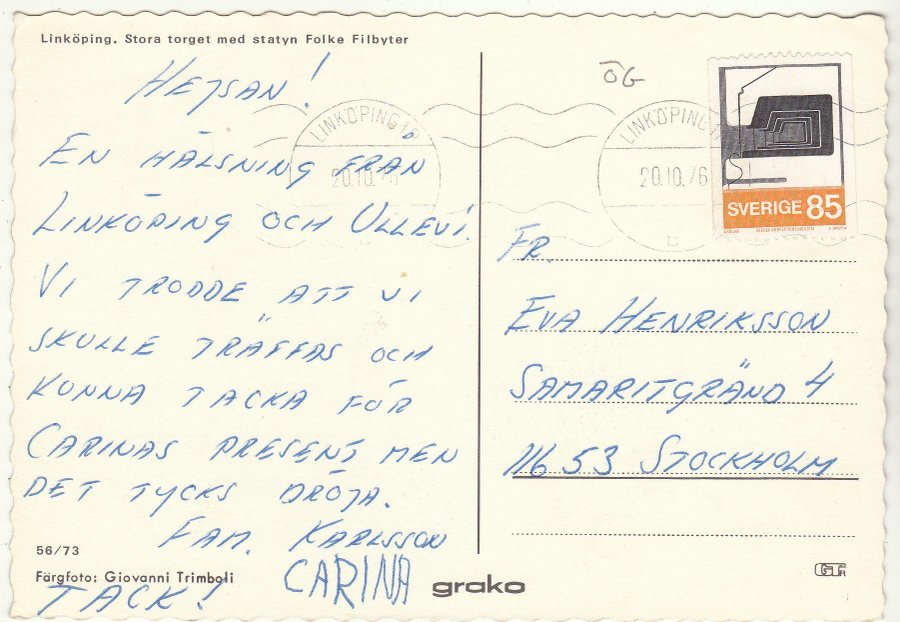 Linköping. Stora torget med statyn Folke Filbyter
HEJSAN!
EN HÄLSNING FRÅN
LINKÖPING OCH ULLEVI!
VI TRODDE ATT VI
SKULLE TRÄFFAS OCH
KUNNA TACKA FÖR
CARINAS PRESENT MEN
DET TYCKS DRÖJA.
FAM. KARLSSON
CARINA
TACK!
56/73
Färgfoto: Giovanni Trimboli
grako
ÖG
LINKÖPING
20.10.76
LINKÖPING
20.10.76
B
SVERIGE 85
FR.
EVA HENRIKSSON
SAMARITGRÄND 4
116 53 STOCKHOLM